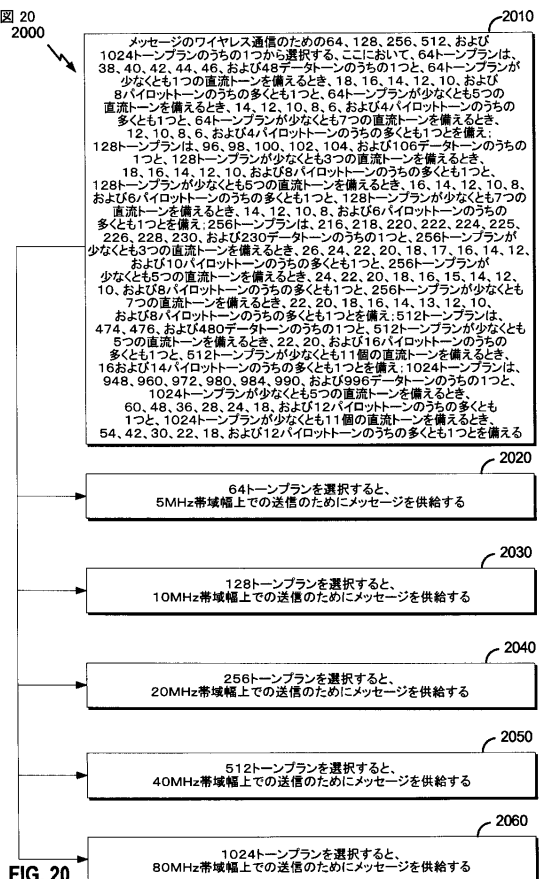 図 20
2000
2010
メッセージのワイヤレス通信のための64、128、256、512、および
1024トーンプランのうちの1つから選択する、ここにおいて、64トーンプランは、
38、40、42、44、46、および48データトーンの1つと、64トーンプランが
少なくとも1つの直流トーンを備えるとき、18、16、14、12、10、および
8パイロットトーンのうちの多くとも1つと、64トーンプランが少なくとも5つの
直流トーンを備えるとき、14、12、10、8、6、および4パイロットトーンのうちの
多くとも1つと、64トーンプランが少なくとも7つの直流トーンを備えるとき、
12、10、8、6、および4パイロットトーンのうちの多くとも1つとを備え;
128トーンプランは、96、98、100、102、104、および106データトーンのうちの
1つと、128トーンプランが少なくとも3つの直流トーンを備えるとき、
18、16、14、12、10、および8パイロットトーンのうちの多くとも1つと、
128トーンプランが少なくとも5つの直流トーンを備えるとき、16、14、12、10、8、
および6パイロットトーンのうちの多くとも1つと、128トーンプランが少なくとも7つの
直流トーンを備えるとき、14、12、10、8、および6パイロットトーンのうちの
多くとも1つを備え;256トーンプランは、216、218、220、222、224、225、
226、228、230、および230データトーンのうちの1つと、256トーンプランが
少なくとも3つの直流トーンを備えるとき、26、24、22、20、18、17、16、14、12、
および10パイロットトーンのうちの多くとも1つと、256トーンプランが
少なくとも5つの直流トーンを備えるとき、24、22、20、18、16、15、14、12、
10、および8パイロットトーンのうちの多くとも1つと、256トーンプランが少なくとも
7つの直流トーンを備えるとき、22、20、18、16、14、13、12、10、
および8パイロットトーンのうちの多くとも1つを備え;512トーンプランは、
474、476、および480データトーンのうちの1つと、512トーンプランが少なくとも
5つの直流トーンを備えるとき、22、20、および16パイロットトーンのうちの
多くとも1つと、512トーンプランが少なくとも11個の直流トーンを備えるとき、
16および14パイロットトーンのうちの多くとも1つを備え;1024トーンプランは、
948、960、972、980、984、990、および996データトーンのうちの1つと、
1024トーンプランが少なくとも5つの直流トーンを備えるとき、
60、48、36、28、24、18、および12パイロットトーンのうちの多くとも
1つと、1024トーンプランが少なくとも11個の直流トーンを備えるとき、
54、42、30、22、18、および12パイロットトーンのうちの多くとも1つとを備える
2020
64トーンプランを選択すると、
5MHz帯域幅上での送信のためにメッセージを供給する
2030
128トーンプランを選択すると、
10MHz帯域幅上での送信のためにメッセージを供給する
2040
256トーンプランを選択すると、
20MHz帯域幅上での送信のためにメッセージを供給する
2050
512トーンプランを選択すると、
40MHz帯域幅上での送信のためにメッセージを供給する
2060
1024トーンプランを選択すると、
80MHz帯域幅上での送信のためにメッセージを供給する
FIG. 20